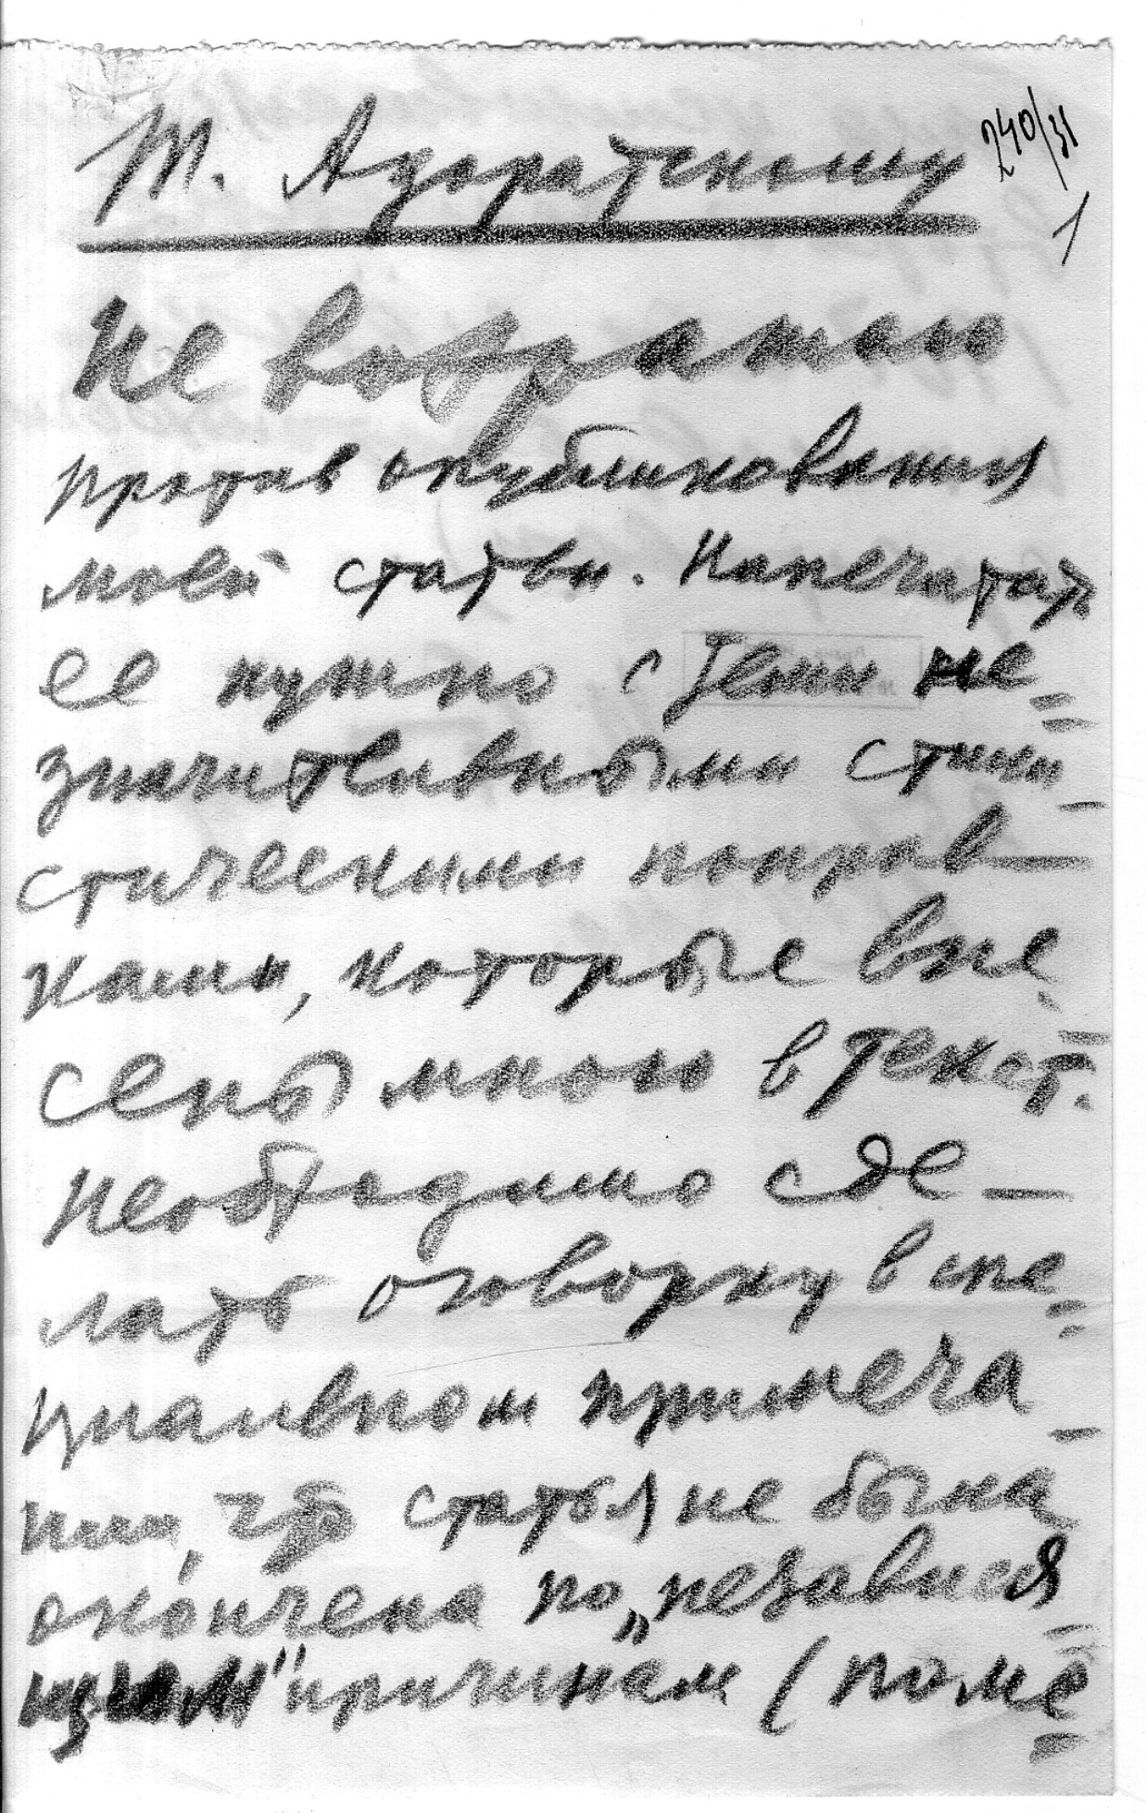 240/31
1
Т. Адоратскому
Не возражаю
против опубликования
моей статьи. Напечатать
ее нужно с теми не=
значительными стили-
стическими поправ-
ками, которые вне
сены мною в текст.
Необходимо сде-
лать оговорку в спе=
циальном примеча-
нии, что статья не была
окончена по „независя
щим" причинам (поме